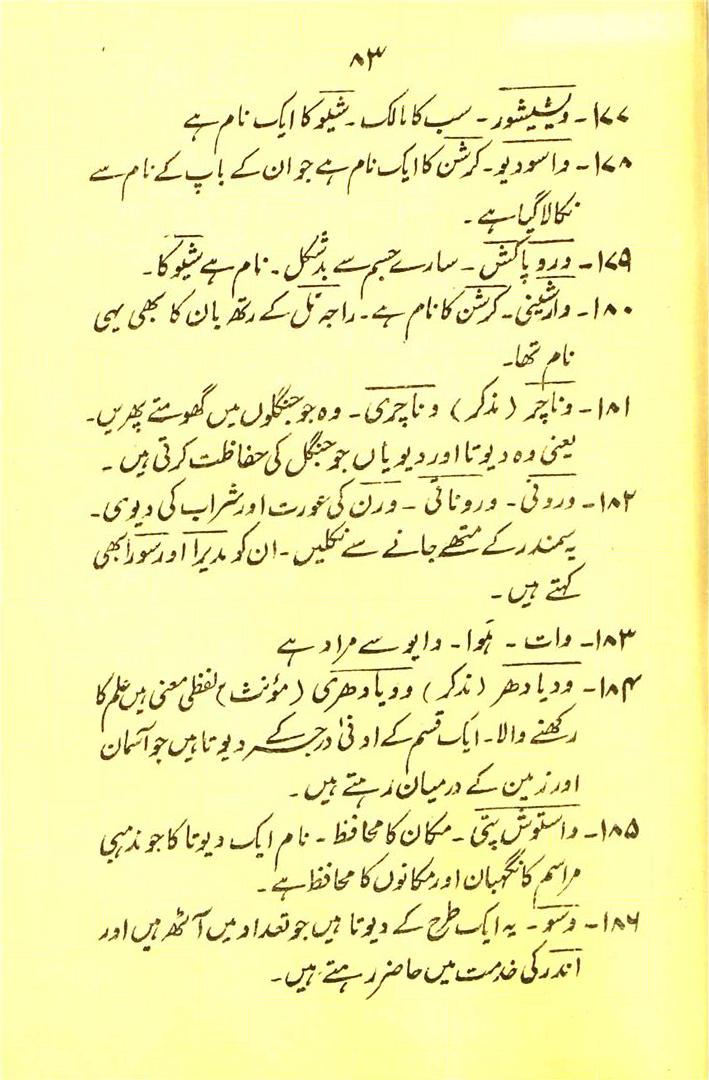 ۸۳
۱۷۷- ویشیشور - سب کا مالک - شیو کا ایک نام ہے
۱۷۸- واسودیو - کرشن کا ایک نام ہے جو ان کے باپ کے نام سے
نکالا گیا ہے -
۱۷۹- وروپاکش - سارے جسم سے بدشکل - نام ہے شیو کا -
۱۸۰- وارشینی - کرشن کا نام ہے - راجہ نل کے رتھ بان کا بھی یہی
نام تھا -
۱۸۱- وناچر (مذکر) وناچری - وہ جو جنگلوں میں گھومتے پھریں -
یعنی وہ دیوتا اور دیویاں جو جنگل کی حفاظت کرتی ہیں -
۱۸۲- ورونی - ورونائی - ورن کی عورت اور شراب کی دیوی -
یہ سمندر کے متھے جانے سے نکلیں - ان کو مدیرا اور سورا بھی
کہتے ہیں -
۱۸۳- وات - ہَوا - وایو سے مراد ہے
۱۸۴- ودیادھر (مذکر) وویادھری (مؤنث) لفظی معنی ہیں علم کا
رکھنے والا - ایک قسم کے ادنیٰ درجہ کے دیوتا ہیں جو آسمان
اور زمین کے درمیان رہتے ہیں -
۱۸۵- واستوش پتی - مکان کا محافظ - نام ایک دیوتا کا جو مذہبی
مراسم کا نگہبان اور مکانوں کا محافظ ہے -
۱۸۶- وسو - یہ ایک طرح کے دیوتا ہیں جو تعداد میں آٹھ ہیں اور
اندر کی خدمت میں حاضر رہتے ہیں -